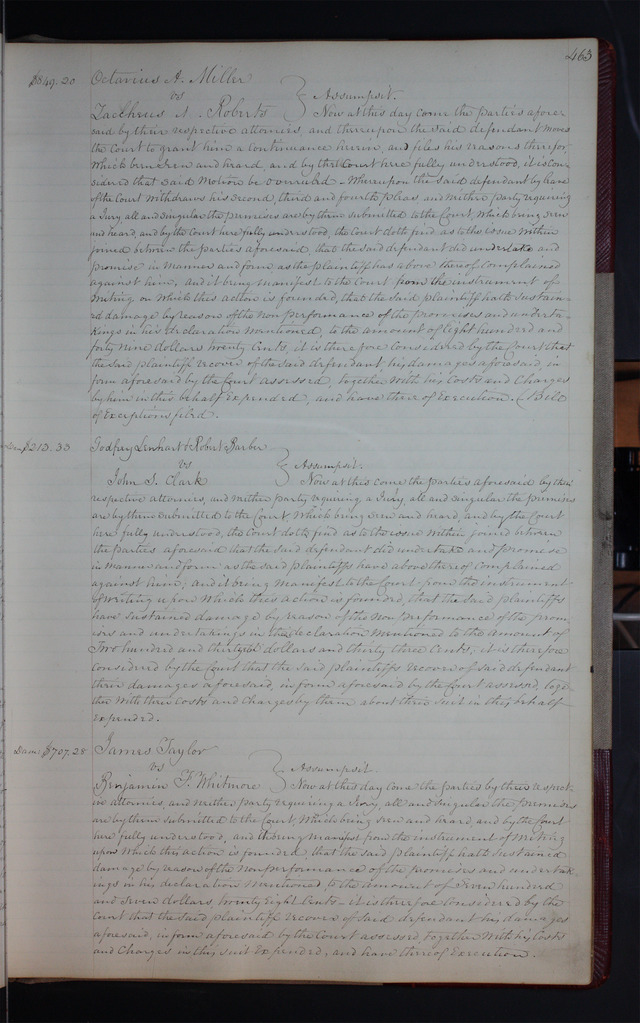 463
$849.20 Octavius A. Miller
vs } Assumpsit.
Zacheus A. Roberts Now at this day come the parties afore
said by their respective attornies, and thereupon the said defendant moves
the Court to grant him a continuance herein, and files his reasons therefor,
Which being seen and heard, and by the Court here fully understood, it is con
sidered that said Motion be overruled – Whereupon the said defendant by leave
of the Court withdraws his second, third and fourth pleas and neither party requiring
a Jury, all and singular the premises are by them submitted to the Court, Which being seen
and heard, and by the Court here fully understood, the Court doth find as to the issue within
joined between the parties aforesaid, that the said defendant did undertake and
promise in manner and form, as the plaintiff has above thereof complained
against him, and it being manifest to the Court from the instrument of
writing on which this action is founded, that the said plaintiff hath sustain
ed damage by reason of the non performance of the promises and underta
kings in his declaration mentioned, to the amount of Eight hundred and
forty nine dollars twenty Cents, it is therefore considered by the Court that
the said plaintiff recover of the said defendant, his damages aforesaid, in
form aforesaid by the Court assessed, together With his Costs and Charges
by him in this behalf Expended, and have thereof Execution. (Bill
of Exceptions filed.
$213.33 Godfrey Lenhart & Robert Barber
vs } Assumpsit.
John S. Clark Now at this come the parties aforesaid by their
respective attornies, and neither party requiring a Jury, all and singular the premises
are by them submitted to the Court, Which being seen and heard, and by the Court
here fully understood, the Court doth find as to the issue within joined between
the parties aforesaid that the said defendant did undertake and promise
in manner and form as the said plaintiffs have above thereof complained
against him; and it being Manifest to the Court from the instrument
of writing upon Which this action is founded, that the said plaintiffs
have sustained damage by reason of the non performance of the prom
ises and undertakings in the declaration mentioned to the amount of
Two hundred and dollars and thirty three Cents, it is therefore
considered by the Court that the said plaintiffs recover of said defendant
their damages aforesaid, in form aforesaid by the Court assessed, toge
ther With their Costs and Charges by them about their suit in this behalf
Expended.
Dam: $707.28 James Taylor
vs } Assumpsit.
Benjamin F. Whitmore Now at this day come the parties by their respect
ive attornies, and neither party requiring a Jury, all and singular the premises
are by them submitted to the Court, Which being seen and heard, and by the Court
here fully understood, and it being manifest from the instrument of writing
upon Which this action is founded, that the said plaintiff hath sustained
damage by reason of the non performance of the promises and undertak
ings in his declaration Mentioned, to the amount of Seven hundred
and Seven dollars, twenty Eight Cents – it is therefore Considered by the
Court that the said plaintiff recover of said defendant his damages
aforesaid, in form aforesaid by the Court assessed together With his Costs
and Charges in this suit Expended, and have thereof Execution.